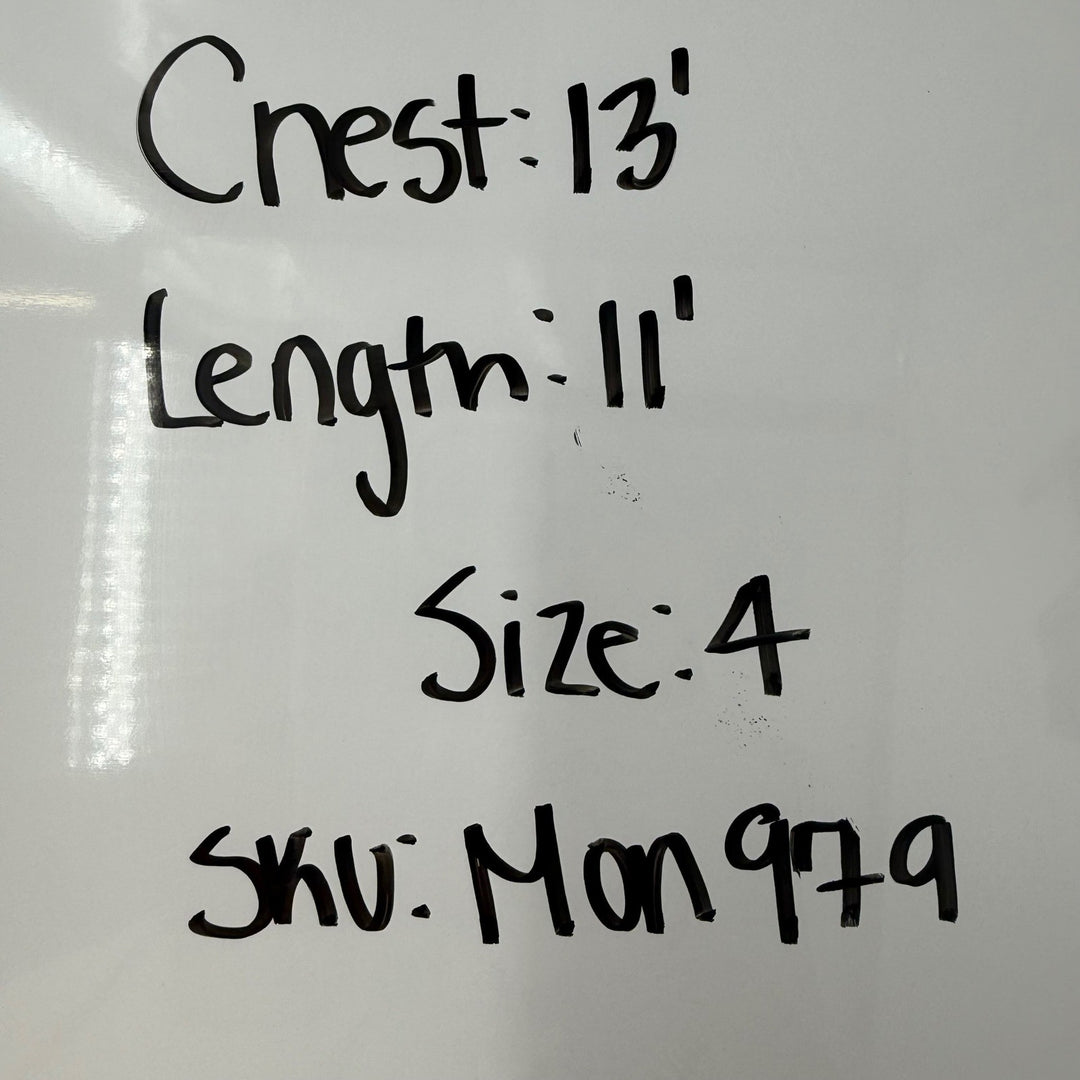 Chest: 13'
Length: 11'
Size: 4
SKU: Mon979